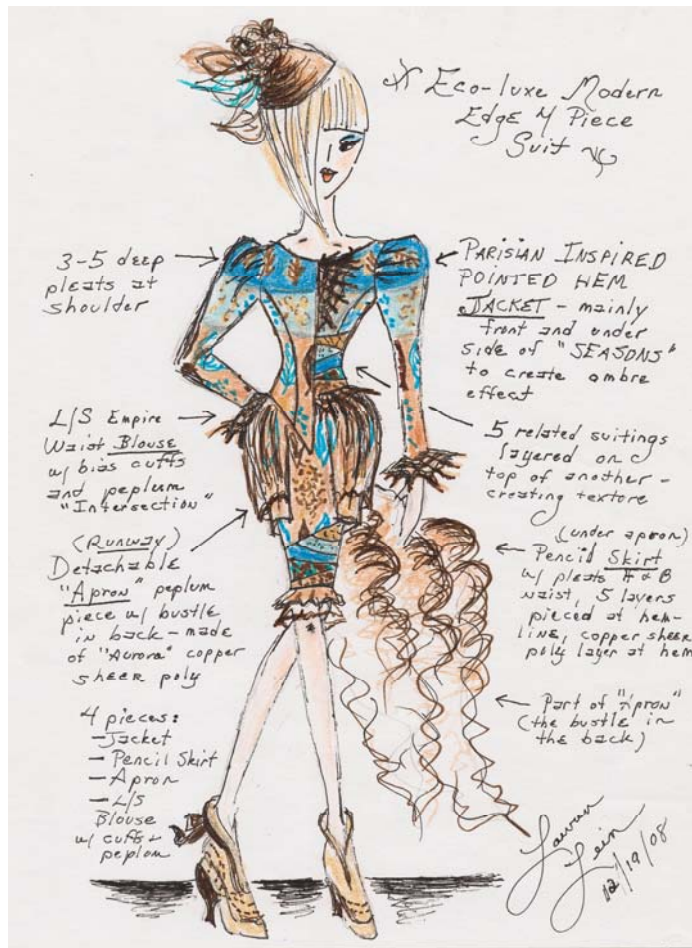 Eco-luxe Modern
Edge 4 Piece
Suit
3-5 deep
pleats at
shoulder
PARISIAN INSPIRED
POINTED HEM
JACKET - mainly
front and under
side of "SEASONS"
to create ombre
effect
L/S Empire
Waist Blouse
w/ bias cuffs
and peplum
"Intersection"
5 related suitings
layered on
top of another -
creating texture
(RUNWAY)
Detachable
"Apron" peplum
piece w/ bustle
in back - made
of "Aurora" copper
sheer poly
(under apron)
Pencil Skirt
w/ pleats @
waist, 5 layers
pieced at hem-
line, copper sheer
poly layer at hem
Part of "Apron"
(the bustle in
the back)
4 pieces:
- Jacket
- Pencil Skirt
- Apron
- L/S
Blouse
w/ cuffs +
peplum
Lauren
Lein
12/19/08